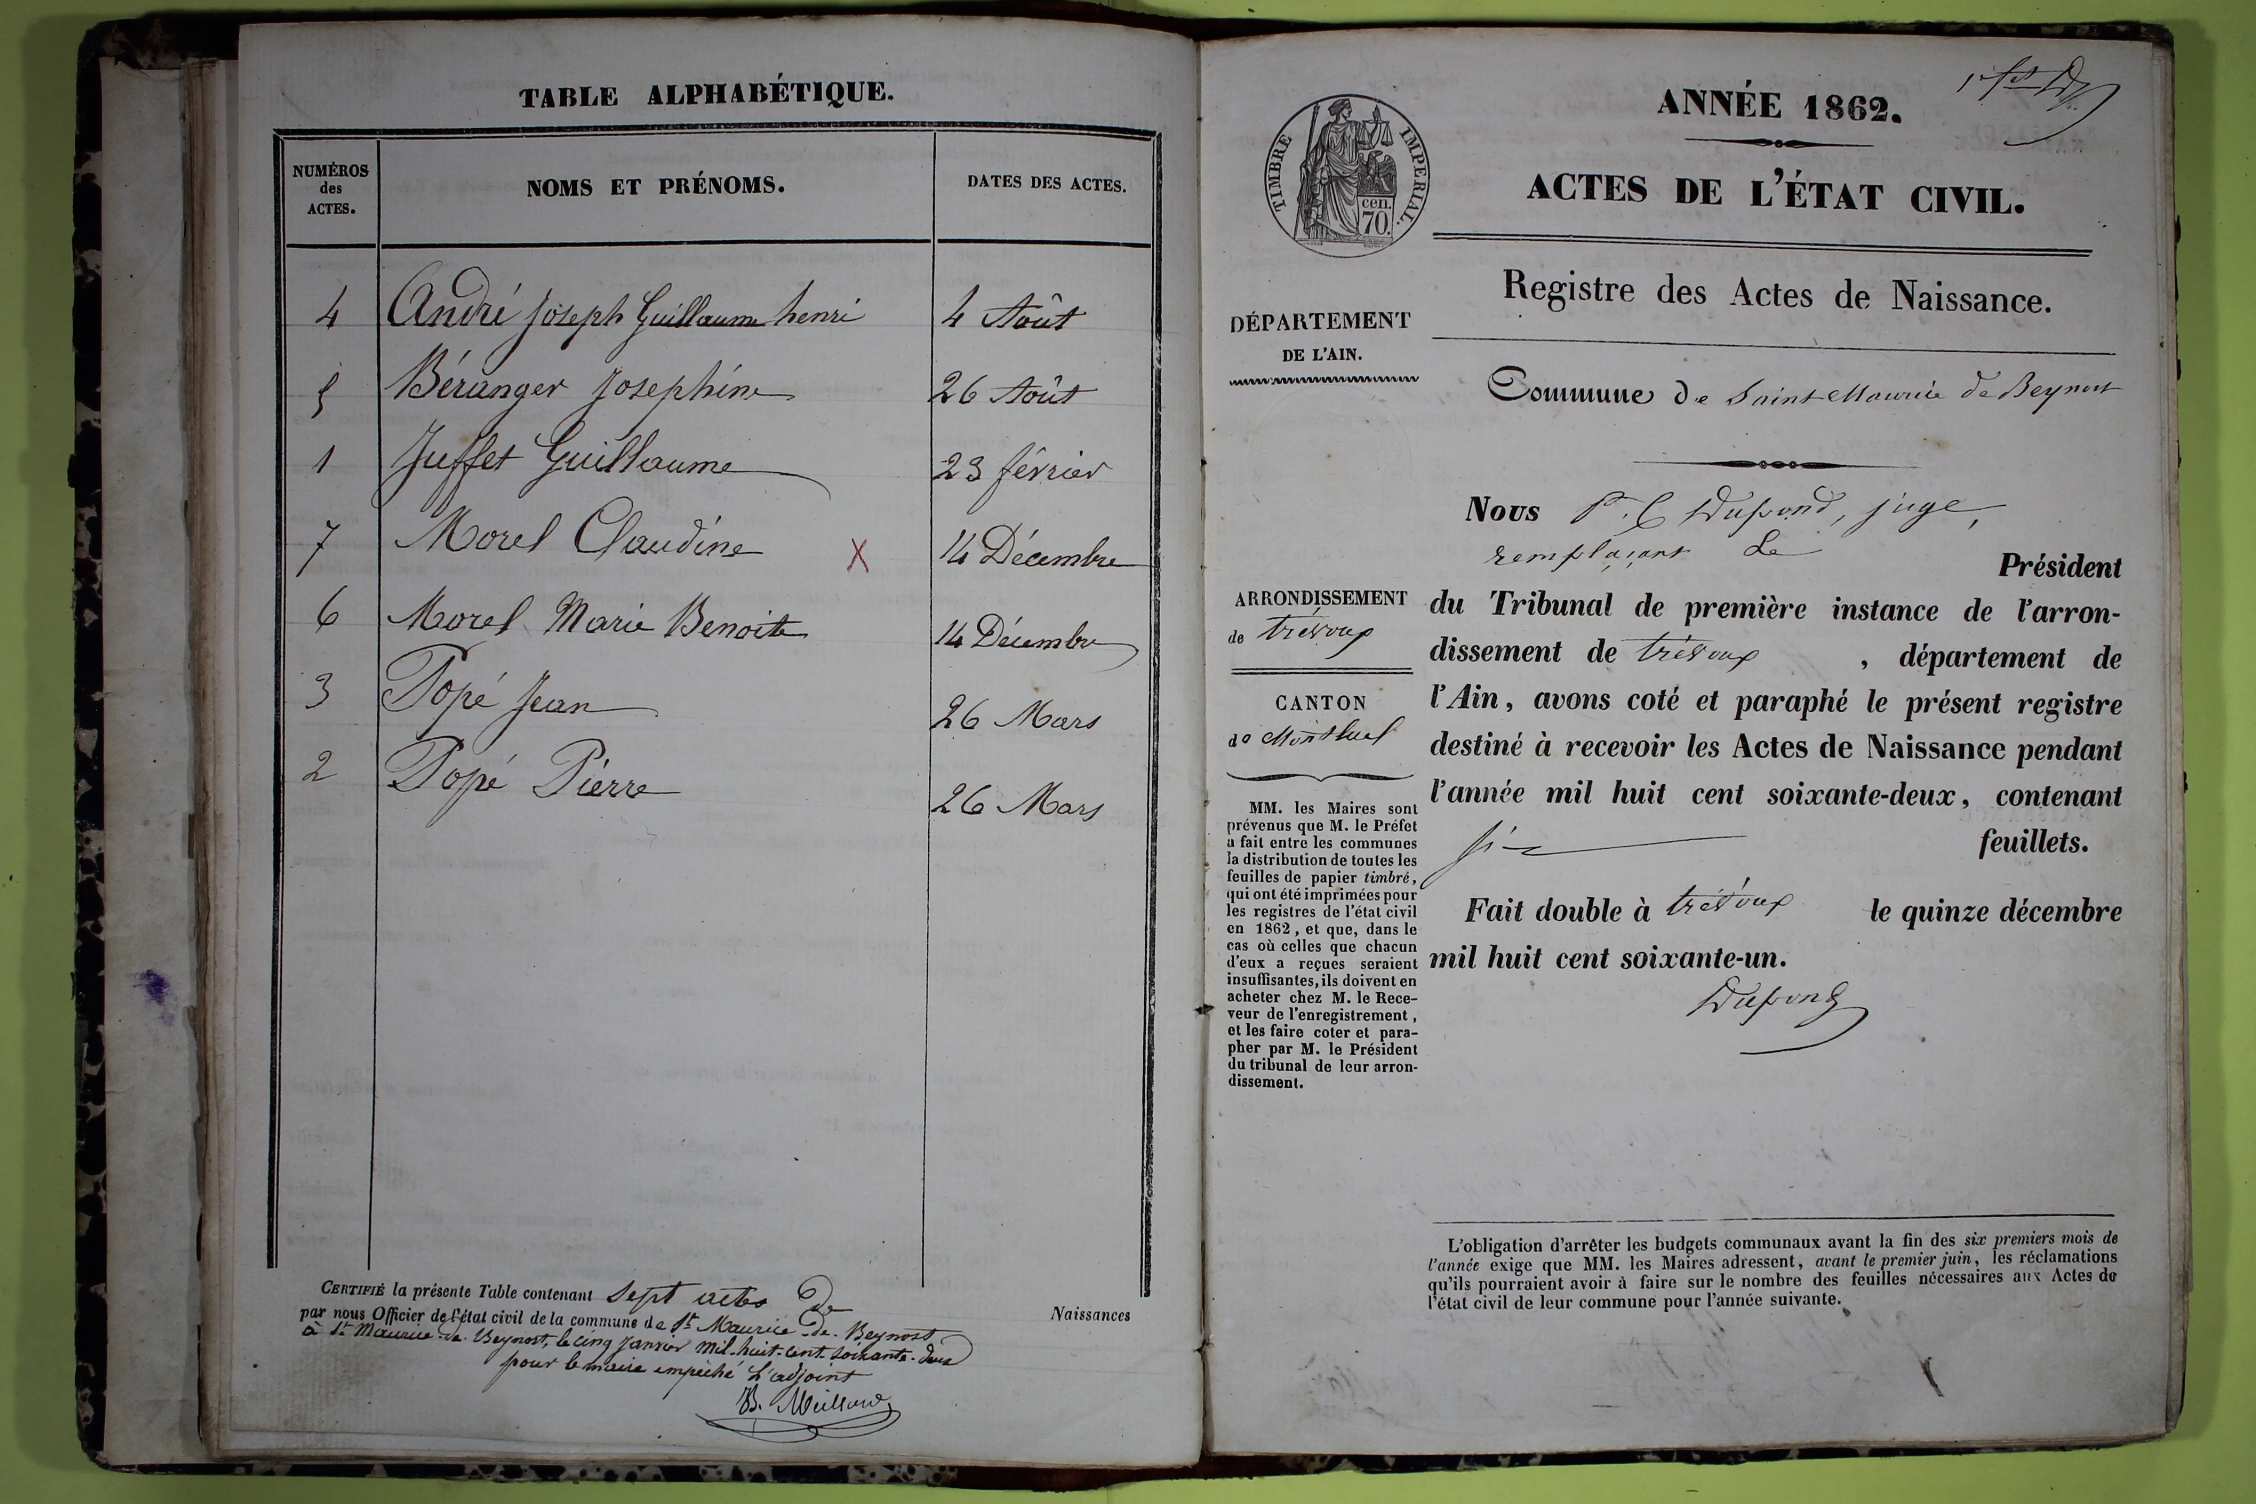 TABLE ALPHABÉTIQUE.
NUMÉROS des ACTES. NOMS ET PRÉNOMS. DATES DES ACTES.
4 André Joseph Guillaume henri 4 Août
5 Béranger Joséphine 26 Août
1 Juffet Guillaume 23 février
7 Morel Claudine X 14 Décembre
6 Morel Marie Benoite 14 Décembre
3 Popé Jean 26 Mars
2 Popé Pierre 26 Mars
CERTIFIÉ la présente Table contenant Sept actes De Naissances
par nous Officier de l'état civil de la commune de St Maurice-de-Beynost
à St Maurice-de-Beynost, le cinq Janvier mil-huit-cent-soixante-deux
pour le maire empêché L'adjoint
B. Meillard
ANNÉE 1862.
ACTES DE L'ÉTAT CIVIL.
TIMBRE IMPERIAL.
cen.
70.
Registre des Actes de Naissance.
DÉPARTEMENT
DE L'AIN.
Commune de Saint Maurice de Beynost
Nous P. C Dupond, juge,
remplaçant Le
Président
du Tribunal de première instance de l'arron-
dissement de trévoux, département de
l'Ain, avons coté et paraphé le présent registre
destiné à recevoir les Actes de Naissance pendant
l'année mil huit cent soixante-deux, contenant
six feuillets.
Fait double à trévoux le quinze décembre
mil huit cent soixante-un.
Dupond
ARRONDISSEMENT
de trévoux
CANTON
de Montluel
MM. les Maires sont
prévenus que M. le Préfet
a fait entre les communes
la distribution de toutes les
feuilles de papier timbré,
qui ont été imprimées pour
les registres de l'état civil
en 1862, et que, dans le
cas où celles que chacun
d'eux a reçues seraient
insuffisantes, ils doivent en
acheter chez M. le Rece-
veur de l'enregistrement,
et les faire coter et para-
pher par M. le Président
du tribunal de leur arron-
dissement.
L'obligation d'arrêter les budgets communaux avant la fin des six premiers mois de
l'année exige que MM. les Maires adressent, avant le premier juin, les réclamations
qu'ils pourraient avoir à faire sur le nombre des feuilles nécessaires aux Actes de
l'état civil de leur commune pour l'année suivante.